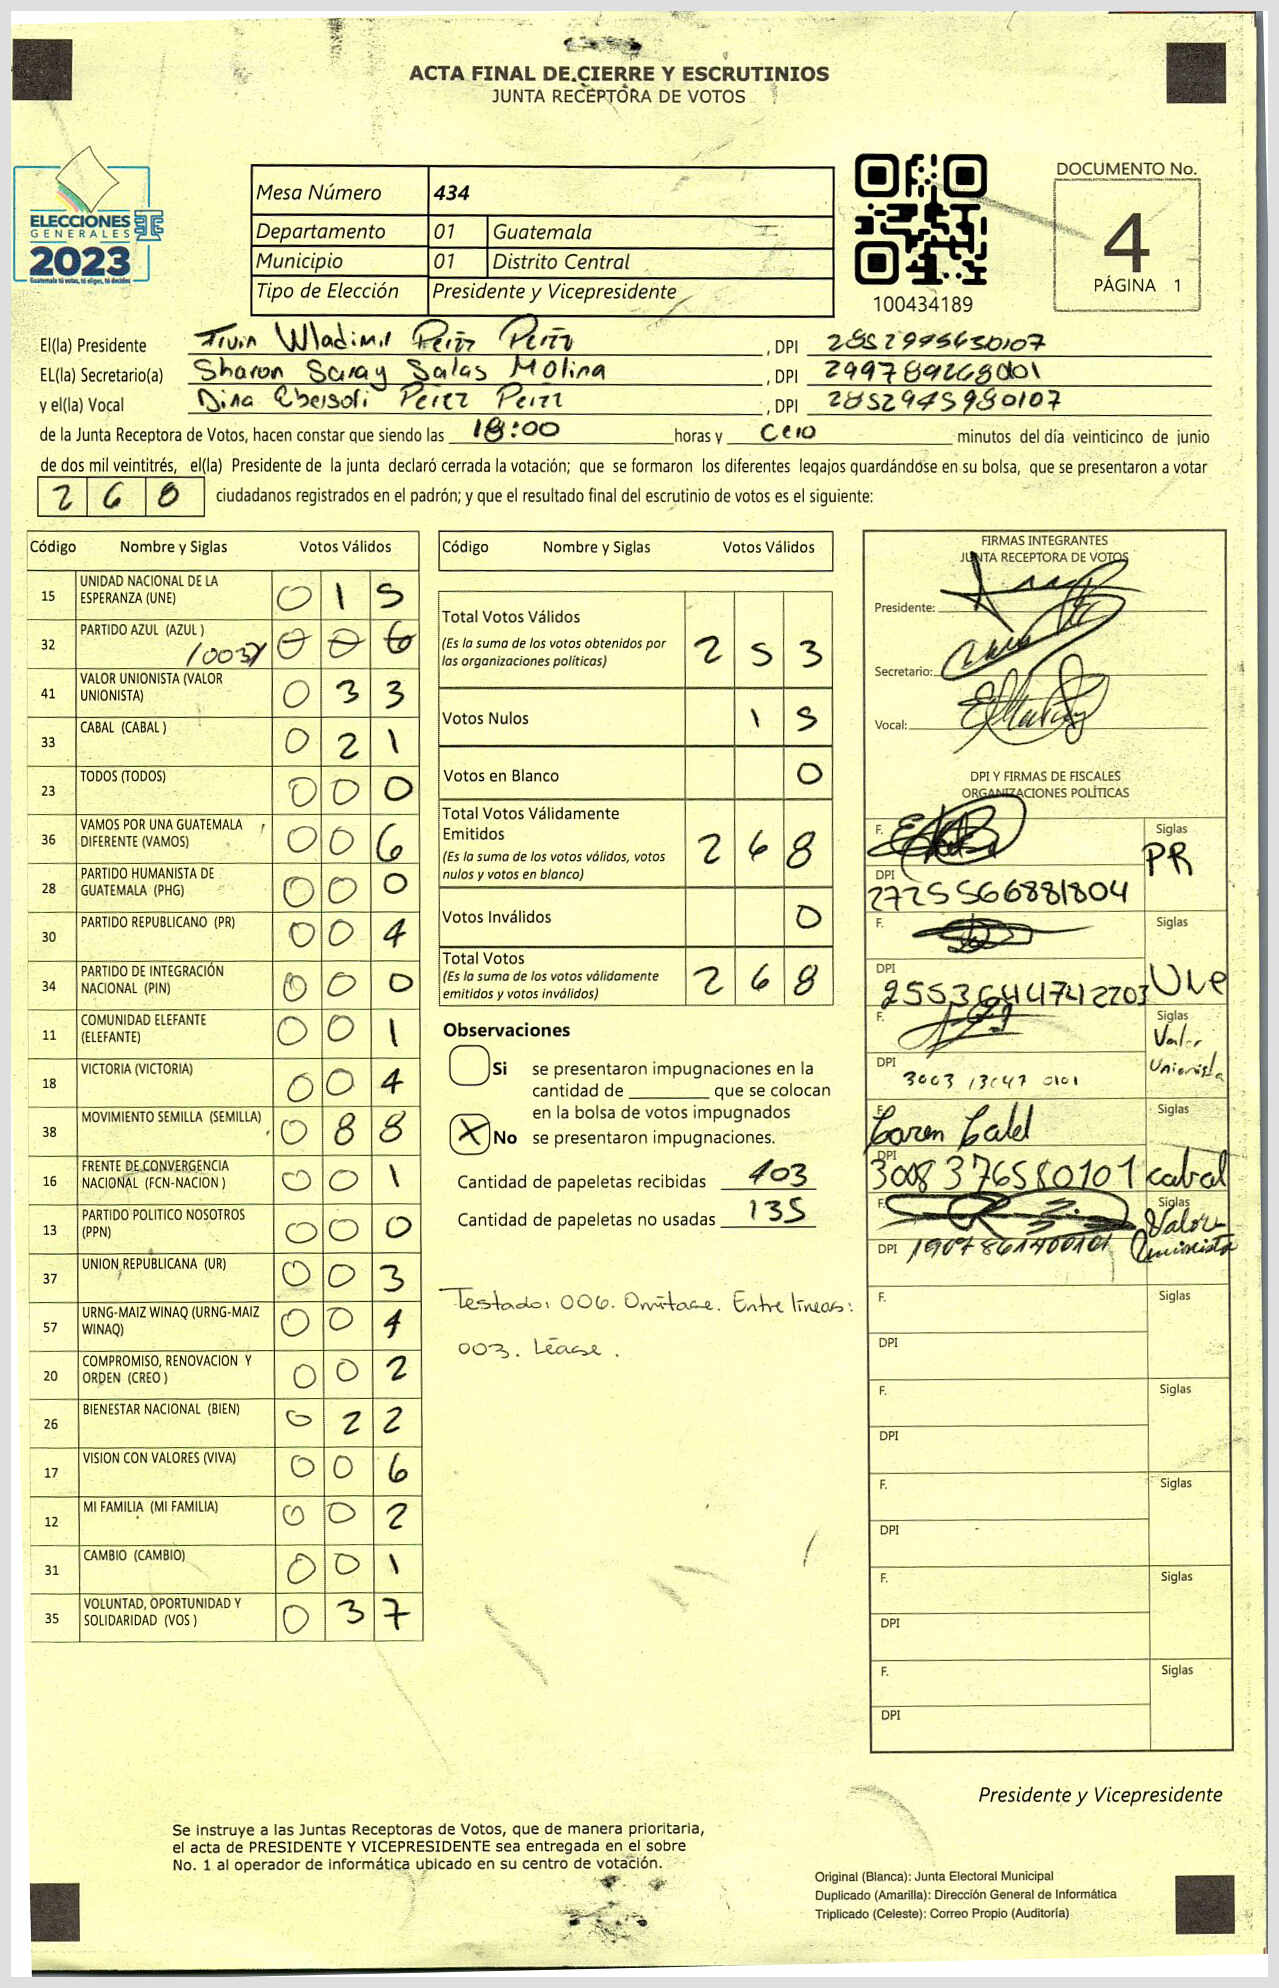 ACTA FINAL DE CIERRE Y ESCRUTINIOS
JUNTA RECEPTORA DE VOTOS
ELECCIONES
GENERALES
2023
Guatemala tú votas, tú eliges, tú decides
Mesa Número 434
Departamento 01 Guatemala
Municipio 01 Distrito Central
Tipo de Elección Presidente y Vicepresidente
100434189
DOCUMENTO No.
4
PÁGINA 1
El(la) Presidente Wladimil , DPI
EL(la) Secretario(a) Sharon Saray Salas Molina , DPI
y el(la) Vocal Dina Perez , DPI 2852945980107
de la Junta Receptora de Votos, hacen constar que siendo las 18:00 horas y cero minutos del día veinticinco de junio
de dos mil veintitrés, el(la) Presidente de la junta declaró cerrada la votación; que se formaron los diferentes legajos guardándose en su bolsa, que se presentaron a votar
268 ciudadanos registrados en el padrón; y que el resultado final del escrutinio de votos es el siguiente:
Código Nombre y Siglas Votos Válidos
15 UNIDAD NACIONAL DE LA ESPERANZA (UNE) 0 1 5
32 PARTIDO AZUL (AZUL ) /003/ 0 0 6
41 VALOR UNIONISTA (VALOR UNIONISTA) 0 3 3
33 CABAL (CABAL ) 0 2 1
23 TODOS (TODOS) 0 0 0
36 VAMOS POR UNA GUATEMALA DIFERENTE (VAMOS) 0 0 6
28 PARTIDO HUMANISTA DE GUATEMALA (PHG) 0 0 0
30 PARTIDO REPUBLICANO (PR) 0 0 4
34 PARTIDO DE INTEGRACIÓN NACIONAL (PIN) 0 0 0
11 COMUNIDAD ELEFANTE (ELEFANTE) 0 0 1
18 VICTORIA (VICTORIA) 0 0 4
38 MOVIMIENTO SEMILLA (SEMILLA) 0 8 8
16 FRENTE DE CONVERGENCIA NACIONAL (FCN-NACION ) 0 0 1
13 PARTIDO POLITICO NOSOTROS (PPN) 0 0 0
37 UNION REPUBLICANA (UR) 0 0 3
57 URNG-MAIZ WINAQ (URNG-MAIZ WINAQ) 0 0 4
20 COMPROMISO, RENOVACION Y ORDEN (CREO ) 0 0 2
26 BIENESTAR NACIONAL (BIEN) 0 2 2
17 VISION CON VALORES (VIVA) 0 0 6
12 MI FAMILIA (MI FAMILIA) 0 0 2
31 CAMBIO (CAMBIO) 0 0 1
35 VOLUNTAD, OPORTUNIDAD Y SOLIDARIDAD (VOS ) 0 3 7
Código Nombre y Siglas Votos Válidos
Total Votos Válidos 2 5 3
(Es la suma de los votos obtenidos por
las organizaciones políticas)
Votos Nulos 1 5
Votos en Blanco 0
Total Votos Válidamente
Emitidos 2 6 8
(Es la suma de los votos válidos, votos
nulos y votos en blanco)
Votos Inválidos 0
Total Votos 2 6 8
(Es la suma de los votos válidamente
emitidos y votos inválidos)
Observaciones
Si se presentaron impugnaciones en la
cantidad de ________ que se colocan
en la bolsa de votos impugnados
X No se presentaron impugnaciones.
Cantidad de papeletas recibidas 403
Cantidad de papeletas no usadas 135
Testado: 006. Omitase. Entre lineas:
003. Léase.
FIRMAS INTEGRANTES
JUNTA RECEPTORA DE VOTOS
Presidente:
Secretario:
Vocal:
DPI Y FIRMAS DE FISCALES
ORGANIZACIONES POLÍTICAS
F. Siglas PR
DPI 2725566881804
F. Siglas Une
DPI 2553644742203
F. Siglas Valor Unionista
DPI 3003 13047 0101
F. Siglas cabal
DPI 3008376580101
F. Siglas Valor Unionista
DPI
F. Siglas
DPI
F. Siglas
DPI
F. Siglas
DPI
F. Siglas
DPI
F. Siglas
DPI
Presidente y Vicepresidente
Se instruye a las Juntas Receptoras de Votos, que de manera prioritaria,
el acta de PRESIDENTE Y VICEPRESIDENTE sea entregada en el sobre
No. 1 al operador de informática ubicado en su centro de votación.
Original (Blanca): Junta Electoral Municipal
Duplicado (Amarilla): Dirección General de Informática
Triplicado (Celeste): Correo Propio (Auditoría)